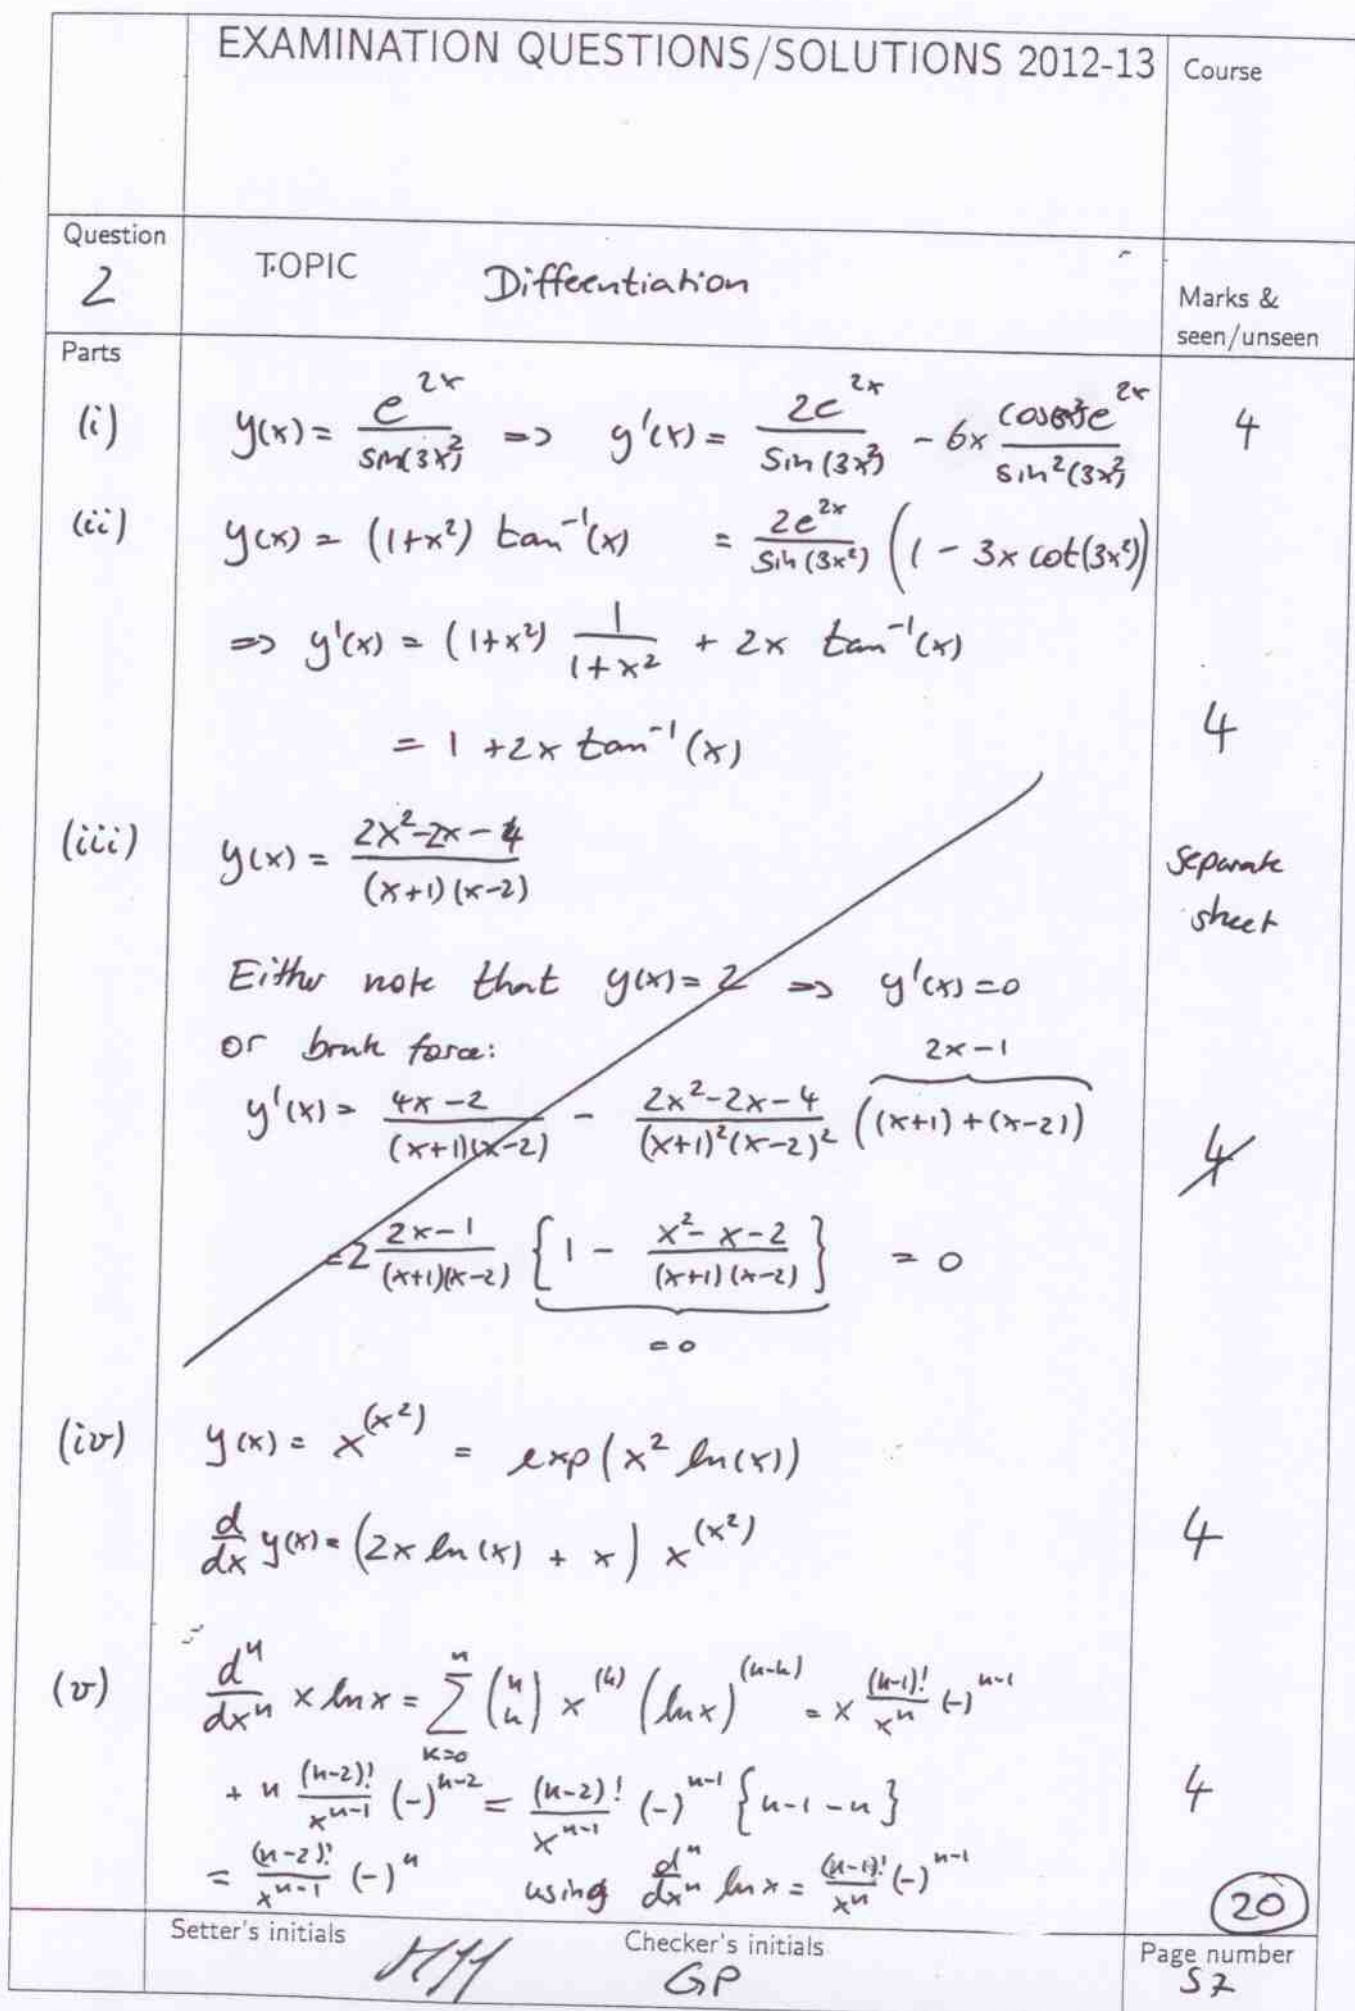 EXAMINATION QUESTIONS/SOLUTIONS 2012-13 Course
Question
2
TOPIC Diffeentiation
Marks &
seen/unseen
Parts
(i) y(x) = e^{2x} / sin(3x²) => y'(x) = 2e^{2x} / sin(3x²) - 6x cos e^{2x} / sin²(3x²) 4
(ii) y(x) = (1+x²) tan⁻¹(x) = 2e^{2x} / sin(3x²) (1 - 3x cot(3x²))
=> y'(x) = (1+x²) 1/(1+x²) + 2x tan⁻¹(x)
= 1 + 2x tan⁻¹(x) 4
(iii) y(x) = (2x²-2x-4) / ((x+1)(x-2)) Separate
sheet
Either note that y(x) = 2 => y'(x) = 0
or brute force: 2x-1
y'(x) = (4x-2) / ((x+1)(x-2)) - (2x²-2x-4) / ((x+1)²(x-2)²) ((x+1)+(x-2)) 4
= 2 (2x-1) / ((x+1)(x-2)) {1 - (x²-x-2) / ((x+1)(x-2))} = 0
= 0
(iv) y(x) = x^{(x²)} = exp(x² ln(x))
d/dx y(x) = (2x ln(x) + x) x^{(x²)} 4
(v) dⁿ/dxⁿ x ln x = Σ_{k=0}^{n} (n k) x^{(k)} (ln x)^{(n-k)} = x (n-1)!/xⁿ (-)^{n-1}
+ n (n-2)!/x^{n-1} (-)^{n-2} = (n-2)!/x^{n-1} (-)^{n-1} {n-1-n} 4
= (n-2)!/x^{n-1} (-)ⁿ using dⁿ/dxⁿ ln x = (n-1)!/xⁿ (-)^{n-1}
20
Setter's initials Checker's initials
GP
Page number
S2